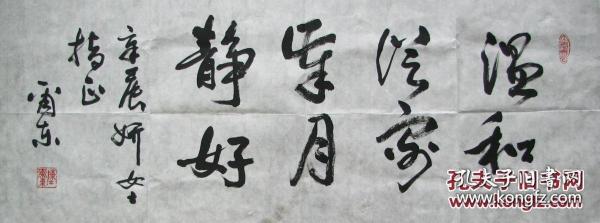 温和
從容
歲月
静好
辛晨妍女士
指正
孔夫子旧书网
www.kongfz.com